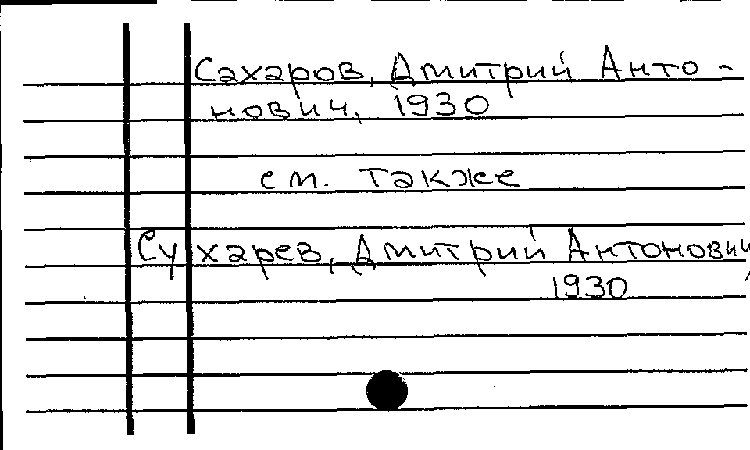 Сахаров, Дмитрий Анто-
нович, 1930
см. также
Сухарев, Дмитрий Антонович,
1930